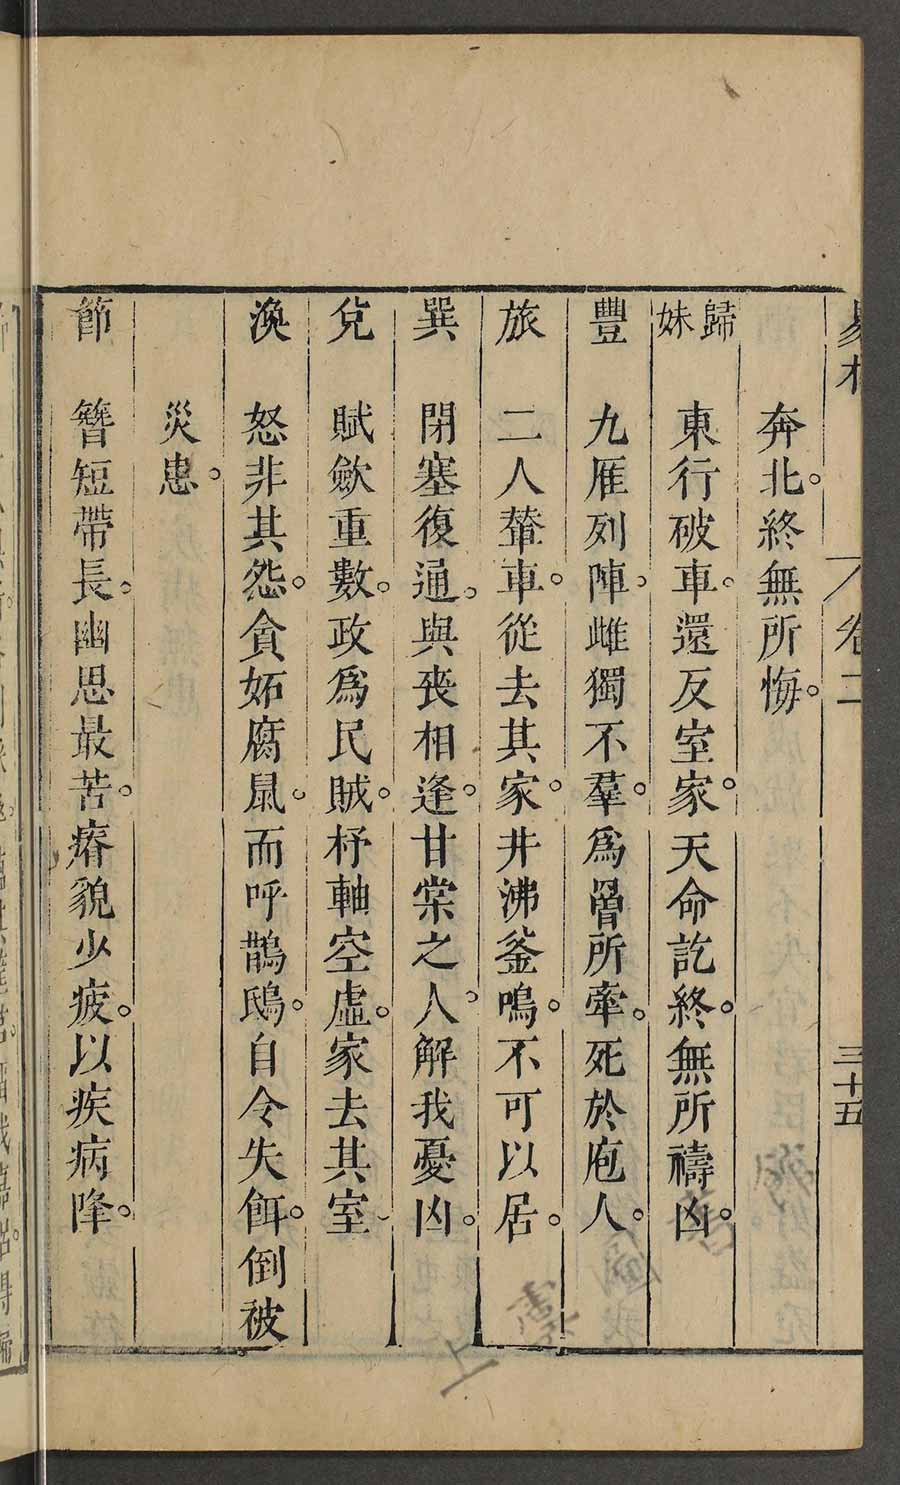 易林 卷二 三十五
奔北。終無所悔。
歸妹 東行破車。還反室家。天命訖終。無所禱凶。
豐 九雁列陣。雌獨不羣。爲罾所牽。死於庖人。
旅 二人輦車。從去其家。井沸釜鳴。不可以居。
巽 閉塞復通。與喪相逢。甘棠之人。解我憂凶。
兌 賦歛重數。政爲民賊。杼軸空虛。家去其室。
渙 怒非其怨。貪妬腐鼠。而呼鵲鴟。自令失餌。倒被
災患。
節 簪短帶長。幽思最苦。瘠貌少疲。以疾病降。